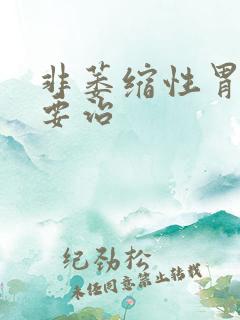 非萎缩性胃
要治
纪劲松
未经同意禁止转载